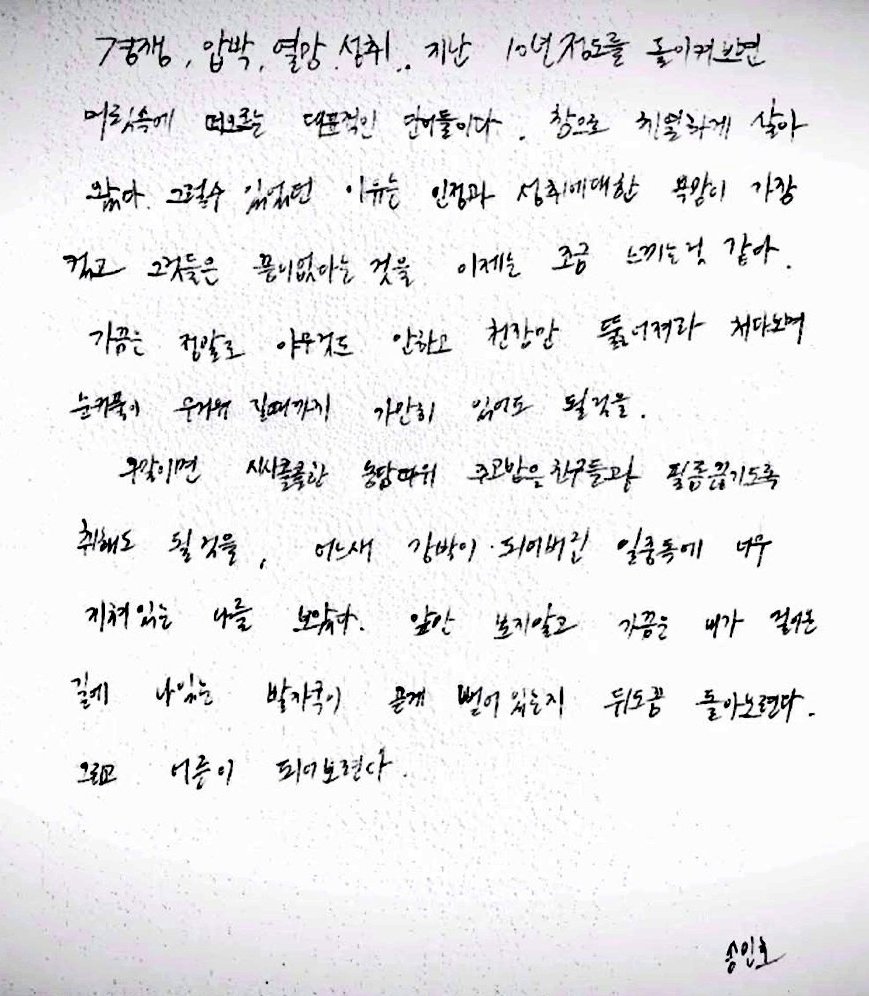 경쟁, 압박, 열망, 성취.. 지난 10년정도를 돌이켜보면
머릿속에 떠오르는 대표적인 단어들이다. 참으로 치열하게 살아
왔다. 그럴수 있었던 이유는 인정과 성취에대한 욕망이 가장
컸고 그것들은 끝이없다는 것을 이제는 조금 느끼는것 같아.
가끔은 정말로 아무것도 안하고 천장만 뚫어져라 쳐다보며
눈커풀이 무거워 질때까지 가만히 있어도 될것을.
주말이면 시시콜콜한 농담따위 주고받을 친구들과 필름끊기도록
취해도 될것을, 어느새 강박이 되어버린 일중독에 너무
지쳐있는 나를 보았다. 앞만 보지말고 가끔은 내가 걸어온
길에 나있는 발자국이 곧게 뻗어 있는지 뒤도좀 돌아보련다.
그리고 어른이 되어보련다.
송인호